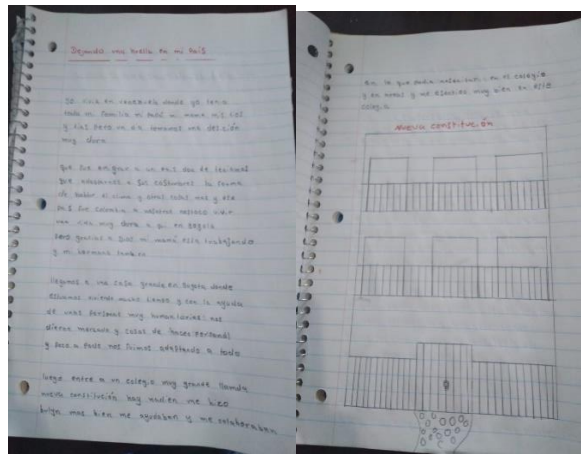 Dejando una huella en mi país
yo vivia en venezuela donde yo tenia
toda mi familia mi papá mi mama mis tios
y tias pero un dia tomamos una
muy dura
que fue emigrar a un país donde
que adaptarnos a sus costumbres la forma
de hablar el clima y otras cosas mas y ese
país fue colombia a nosotros
una vida muy dura
pero gracias a Dios mi mamá esta trabajando
y mi hermano tambien
llegamos a una casa grande en bogota donde
estamos viviendo mucho tiempo y con la ayuda
de unas personas muy humanitarias nos
dieron mercado y cosas de haceo personal
y poco a poco nos fuimos adaptando a todo
luego entre a un colegio muy grande llamado
nueva constitución hay nadien me hizo
bulyn mas bien me ayudaban y me colaboraban
En lo que podia
y me
colegio
nueva constitución